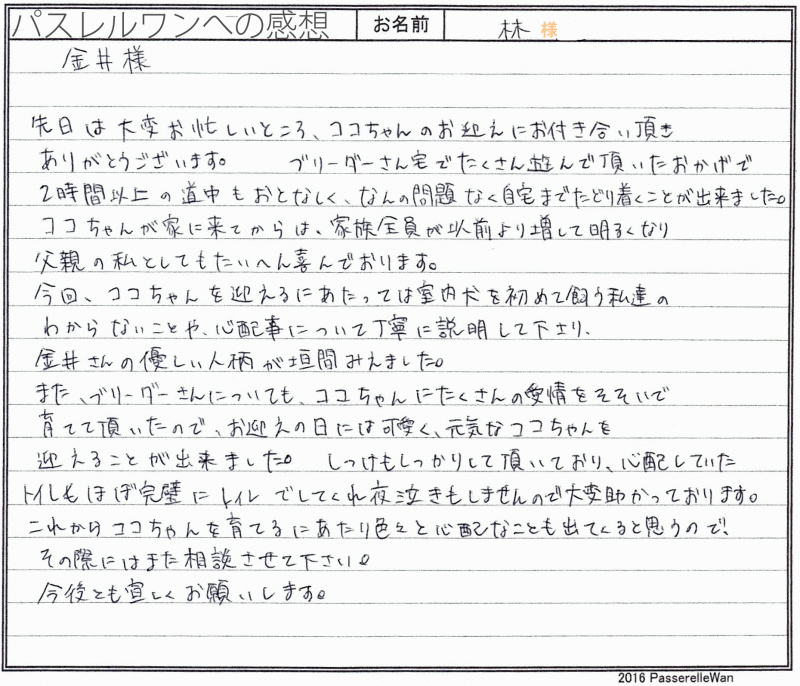 パスレルワンへの感想 お名前 林 様
金井様
先日は大変お忙しいところ、ココちゃんのお迎えにお付き合い頂き
ありがとうございます。 ブリーダーさん宅でたくさん遊んで頂いたおかげで
2時間以上の道中もおとなしく、なんの問題なく自宅までたどり着くことが出来ました。
ココちゃんが家に来てからは、家族全員が以前より増して明るくなり
父親の私としてもたいへん喜んでおります。
今回、ココちゃんを迎えるにあたっては室内犬を初めて飼う私達の
わからないことや、心配事について丁寧に説明して下さり、
金井さんの優しい人柄が垣間みえました。
また、ブリーダーさんについても、ココちゃんにたくさんの愛情をそそいで
育てて頂いたので、お迎えの日には可愛く、元気なココちゃんを
迎えることが出来ました。 しつけもしっかりして頂いており、心配していた
トイレもほぼ完璧にトイレでしてくれ夜泣きもしませんので大変助かっております。
これからココちゃんを育てるにあたり色々と心配なことも出てくると思うので、
その際にはまた相談させて下さい。
今後とも宜しくお願いします。
2016 PasserelleWan